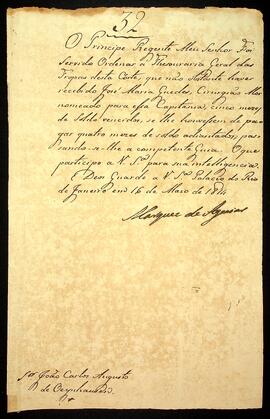 32
O Principe Regente Meu Senhor Foi
Servido Ordenar á Thesouraria Geral das
Tropas desta Corte, que não obstante haver
recebido José Maria Guedes, Cirurgião Mór
nomeado para essa Capitania, cinco mezes
de Soldo vencidos, se lhe houvessem de pa-
gar quatro mezes de soldo adiantados, pas-
sando-se-lhe a competente Guia. O que
participo a V. S.ª para sua intelligencia.
Deos Guarde a V. S.ª Palacio do Rio
de Janeiro em 16 de Maio de 1814
Marquez de Aguiar
S.or João Carlos Augusto
de Oeynhausen